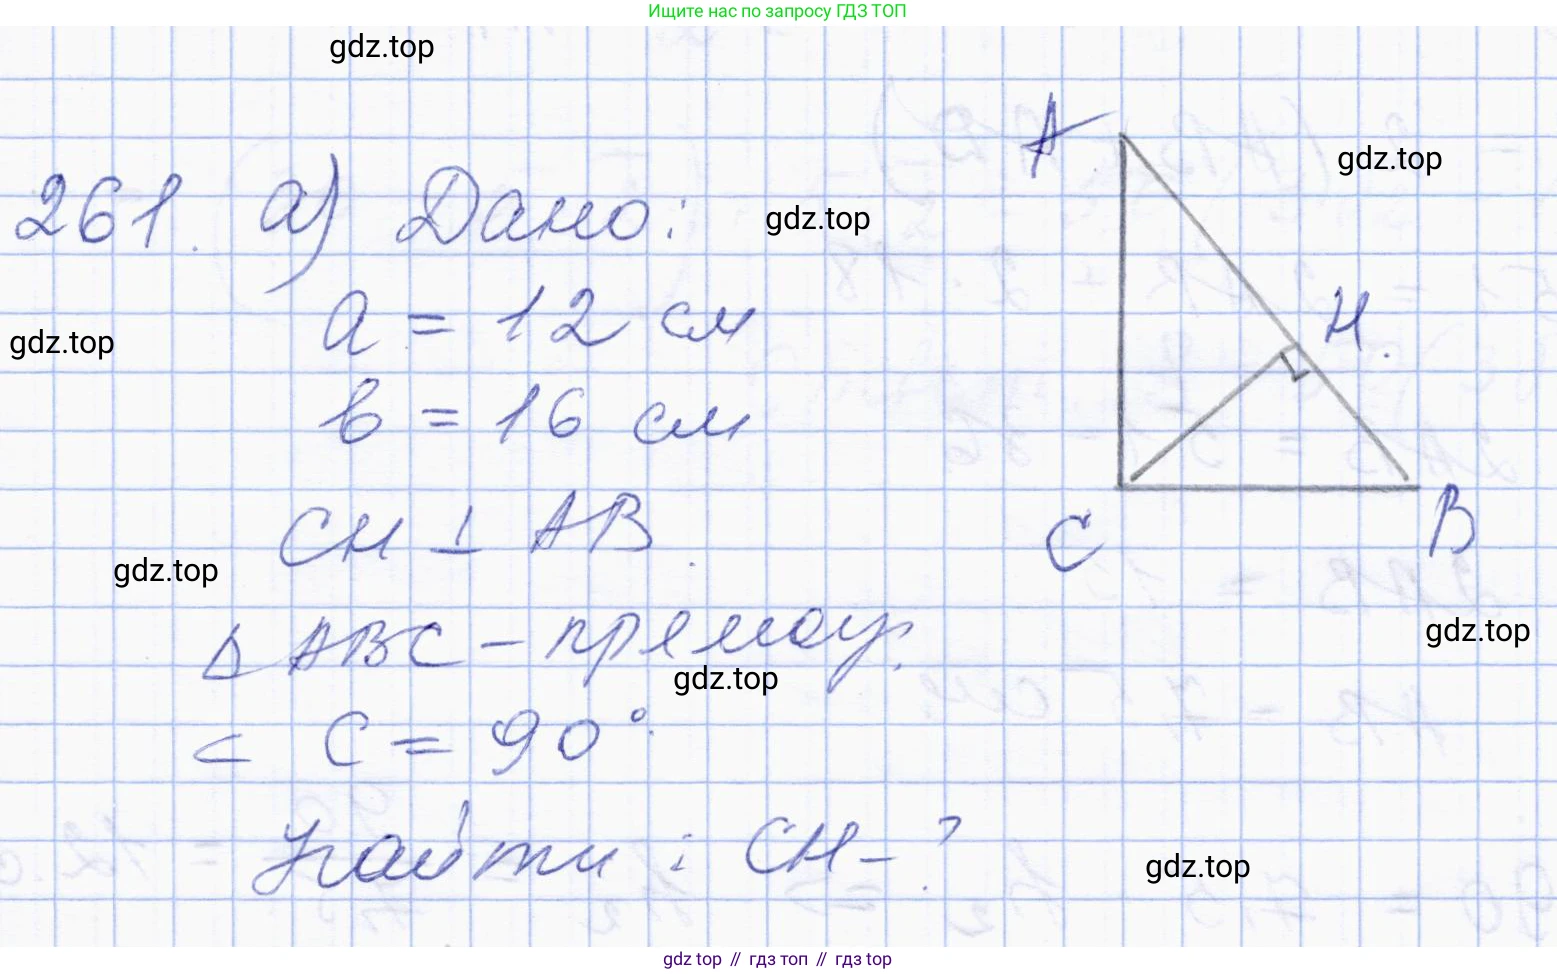 Ищите нас по запросу ГДЗ ТОП
gdz.top
A
gdz.top
261. а) Дано:
gdz.top
a = 12 см
H.
gdz.top
в = 16 см
CH ⊥ AB
C
B
gdz.top
Δ ABC - прямоуг.
gdz.top
gdz.top
< C = 90°.
Найти: CH - ?
gdz.top
gdz top // гдз топ // гдз top